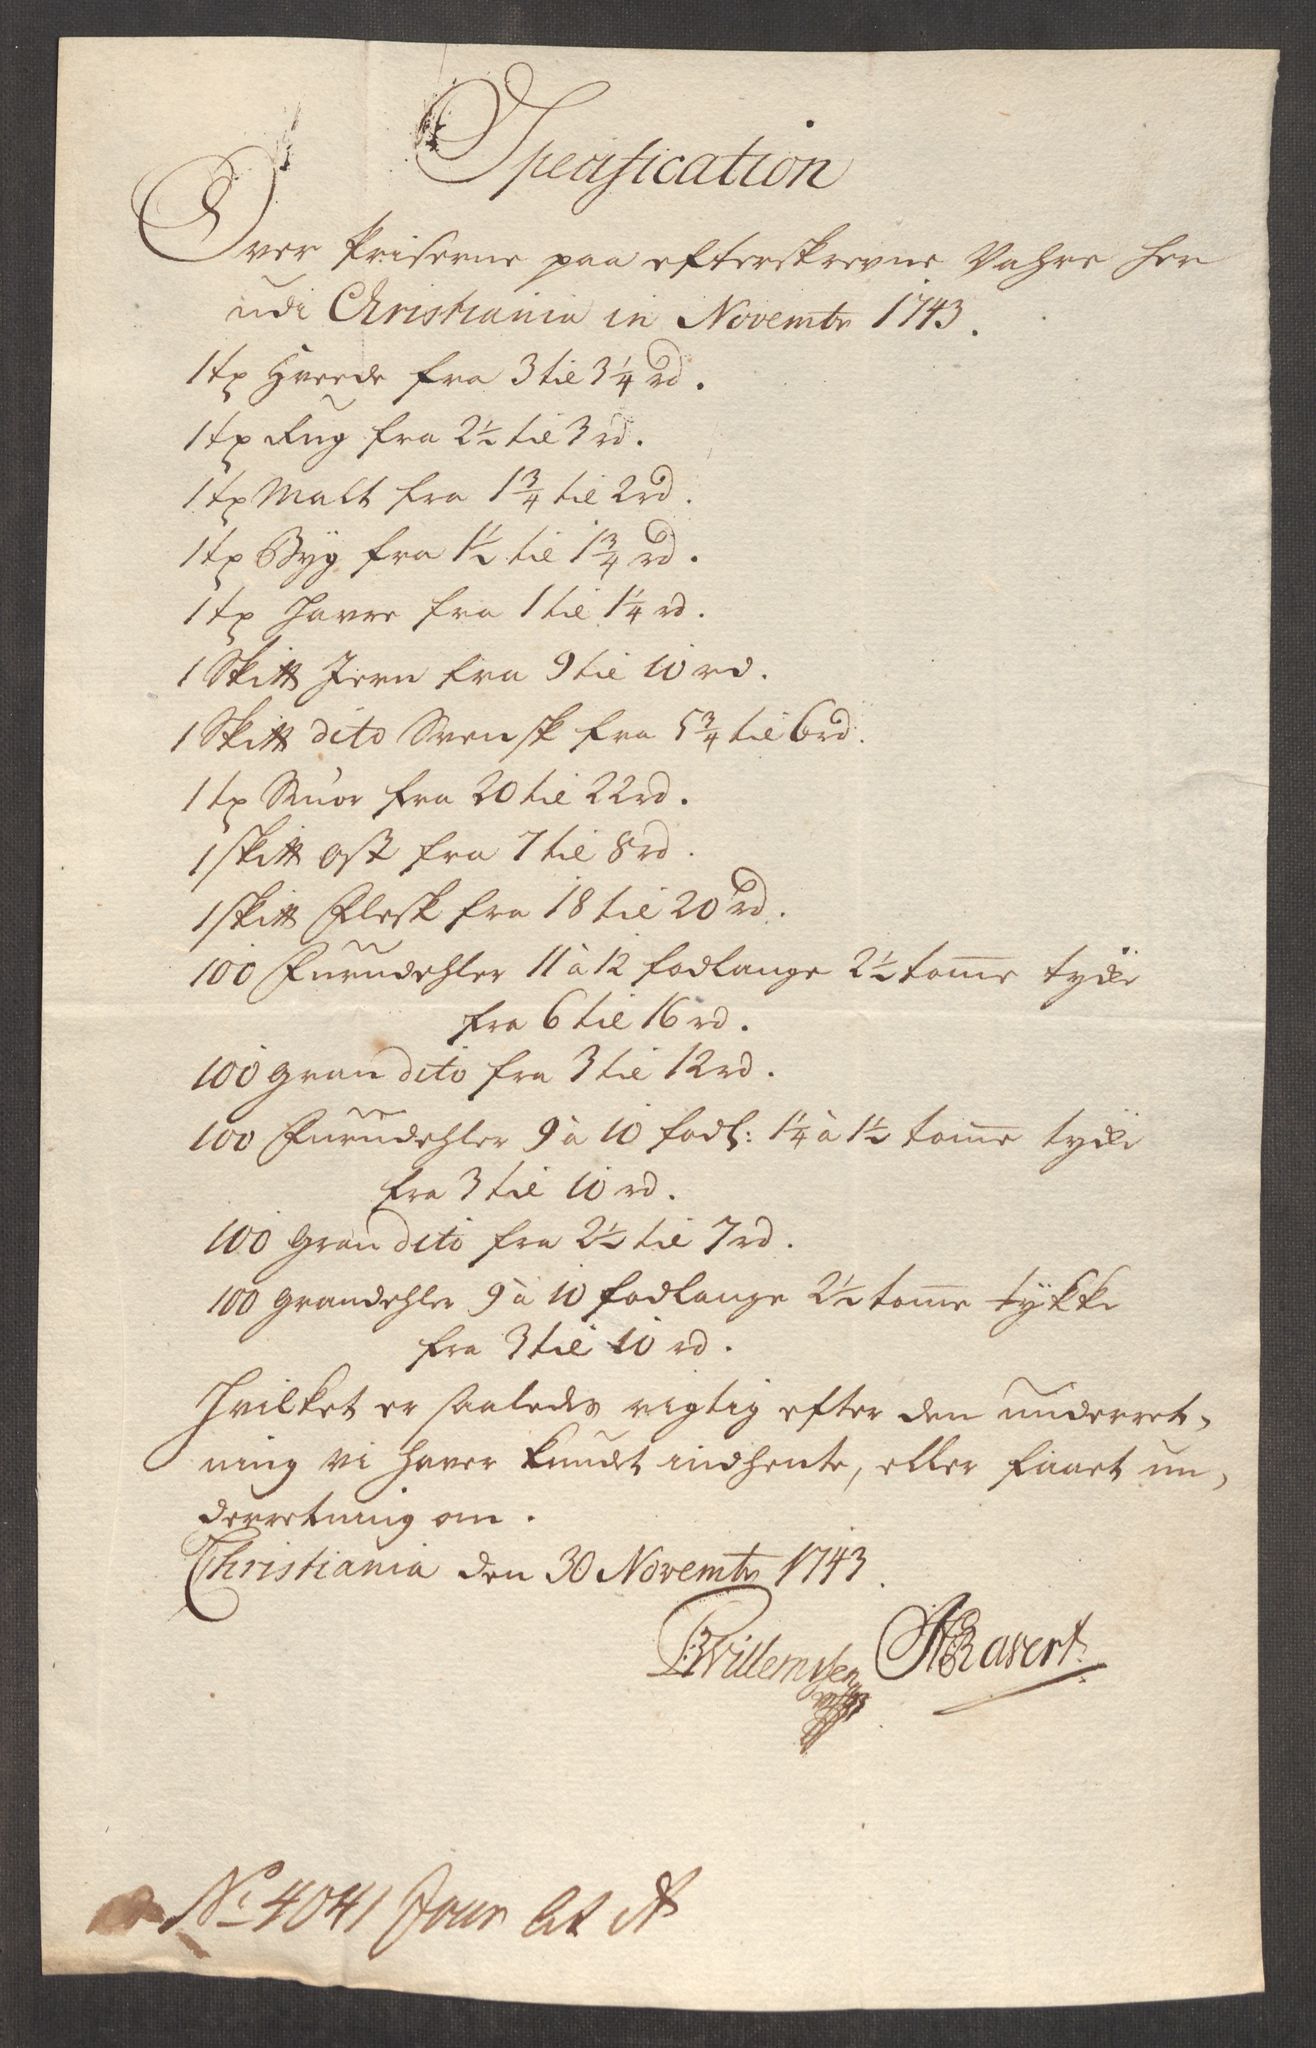 Specification
Over Priserne paa efterskrevne Vahre her
udi Christiania in Novembr 1743.
1 tø Hveede fra 3 til 3 1/4 rd.
1 tø Rug fra 2 1/2 til 3 rd.
1 tø Malt fra 1 3/4 til 2 rd.
1 tø Byg fra 1 1/2 til 1 3/4 rd.
1 tø Havre fra 1 til 1 1/4 rd.
1 Skit℔ Jern fra 9 til 10 rd.
1 Skit℔ dito Svensk fra 5 3/4 til 6 rd.
1 tø Smør fra 20 til 22 rd.
1 skit℔ Ost fra 7 til 8 rd.
1 skit℔ Flesk fra 18 til 20 rd.
100 Furudehler 11 à 12 fodlange 2 1/2 tom̅e tycke
fra 6 til 16 rd.
100 gran dito fra 3 til 12 rd.
100 Furudehler 9 à 10 fodl: 1 1/4 à 1 1/2 tom̅e tycke
fra 3 til 10 rd.
100 Gran dito fra 2 1/2 til 7 rd.
100 grandehler 9 à 10 fodlange 2 1/2 tom̅e tykke
fra 3 til 10 rd.
Hvilket er saaledes rigtig efter den underret-
ning vi haver kundet indhente, eller faaet un-
derretning om.
Christiania den 30 Novembr 1743.
Willemssen Ravert
No 4041 Jour Lit A